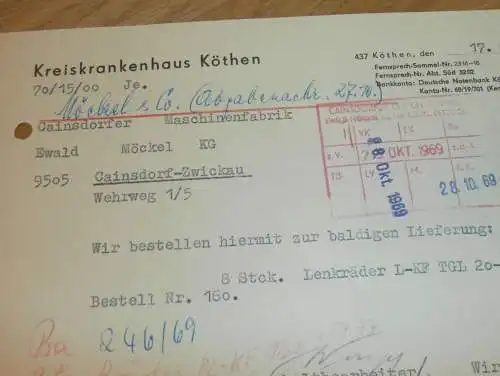 Kreiskrankenhaus Köthen
437 Köthen, den 17.
Fernsprech-Sammel-Nr. 2316-18
Fernsprech-Nr. Abt. Süd 3252
Bankkonto: Deutsche Notenbank Kö
Konto-Nr. 68/19/701 (Ken
70/15/00 Je.
Möckel & Co. (Abgabenachr. 27.10.)
Cainsdorfer Maschinenfabrik
Ewald Möckel KG
9505 Cainsdorf-Zwickau
Wehrweg 1/5
OKT. 1969
28. Okt. 1969
28.10.69
Wir bestellen hiermit zur baldigen Lieferung:
8 Stck. Lenkräder L-KF TGL 20-
Bestell Nr. 160.
246/69
Wir